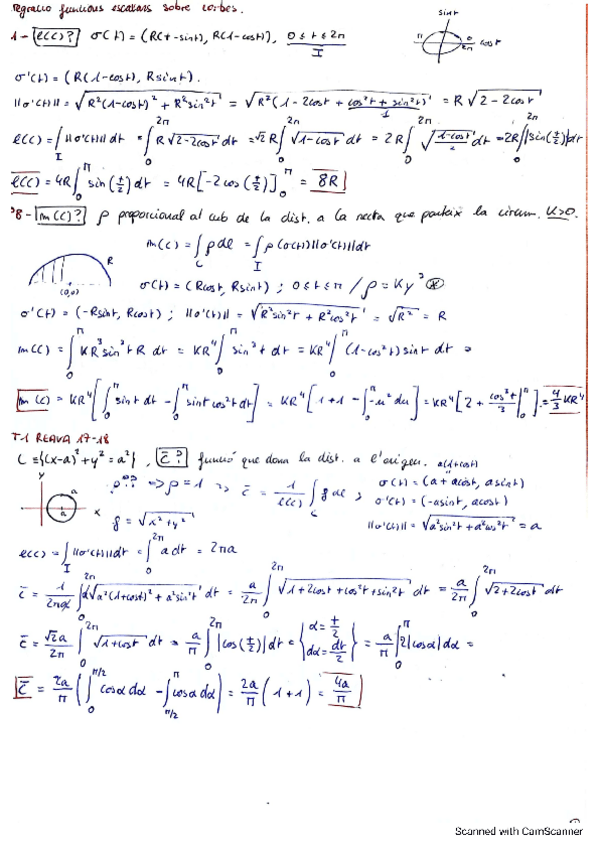 funcions escalars sobre corbes.
1 - l(C)? σ(t) = (R(t-sint), R(1-cost)), 0 ≤ t ≤ 2π
I
sint
π 0 2π cost
σ'(t) = (R(1-cost), Rsint).
||σ'(t)|| = √(R²(1-cost)² + R²sin²t) = √(R²(1-2cost + cos²t + sin²t)) = R√(2-2cost)
1
l(C) = ∫_I ||σ'(t)|| dt = ∫_0^{2π} R√(2-2cost) dt = √2 R ∫_0^{2π} √(1-cost) dt = 2R ∫_0^{2π} √((1-cost)/2) dt = 2R ∫_0^{2π} |sin(t/2)| dt
l(C) = 4R ∫_0^π sin(t/2) dt = 4R [-2cos(t/2)]_0^π = 8R
8 - m(C)? ρ proporcional al cub de la dist. a la recta que parteix la circum. K>0.
m(C) = ∫_C ρ dl = ∫_I ρ(σ(t)) ||σ'(t)|| dt
R
(0,0)
σ(t) = (Rcost, Rsint) ; 0 ≤ t ≤ π / ρ = Ky³ *
σ'(t) = (-Rsint, Rcost) ; ||σ'(t)|| = √(R²sin²t + R²cos²t) = √R² = R
m(C) = ∫_0^π KR³sin³t R dt = KR⁴ ∫_0^π sin³t dt = KR⁴ ∫_0^π (1-cos²t) sint dt =
m(C) = KR⁴ [∫_0^π sint dt - ∫_0^π sint cos²t dt] = KR⁴ [1+1 - ∫_0^π -u² du] = KR⁴ [2 + cos³t/3 |_0^π] = 4/3 KR⁴
T-1 REAVA 17-18
C = {(x-a)² + y² = a²}, c̄? funció que dona la dist. a l'origen.
a(1+cost)
y
a
a
x
ρ?? => ρ = 1 => c̄ = 1/l(C) ∫_C f dl ; σ(t) = (a + acost, asint)
σ'(t) = (-asint, acost)
f = √(x²+y²)
||σ'(t)|| = √(a²sin²t + a²cos²t) = a
l(C) = ∫_I ||σ'(t)|| dt = ∫_0^{2π} a dt = 2πa
c̄ = 1/2πa ∫_0^{2π} a√(a²(1+cost)² + a²sin²t) dt = a/2π ∫_0^{2π} √(1+2cost+cos²t+sin²t) dt = a/2π ∫_0^{2π} √(2+2cost) dt
c̄ = √2a/2π ∫_0^{2π} √(1+cost) dt = a/π ∫_0^{2π} |cos(t/2)| dt = {α = t/2, dα = dt/2} = a/π ∫_0^π 2|cosα| dα =
c̄ = 2a/π (∫_0^{π/2} cosα dα - ∫_{π/2}^π cosα dα) = 2a/π (1+1) = 4a/π
Scanned with CamScanner